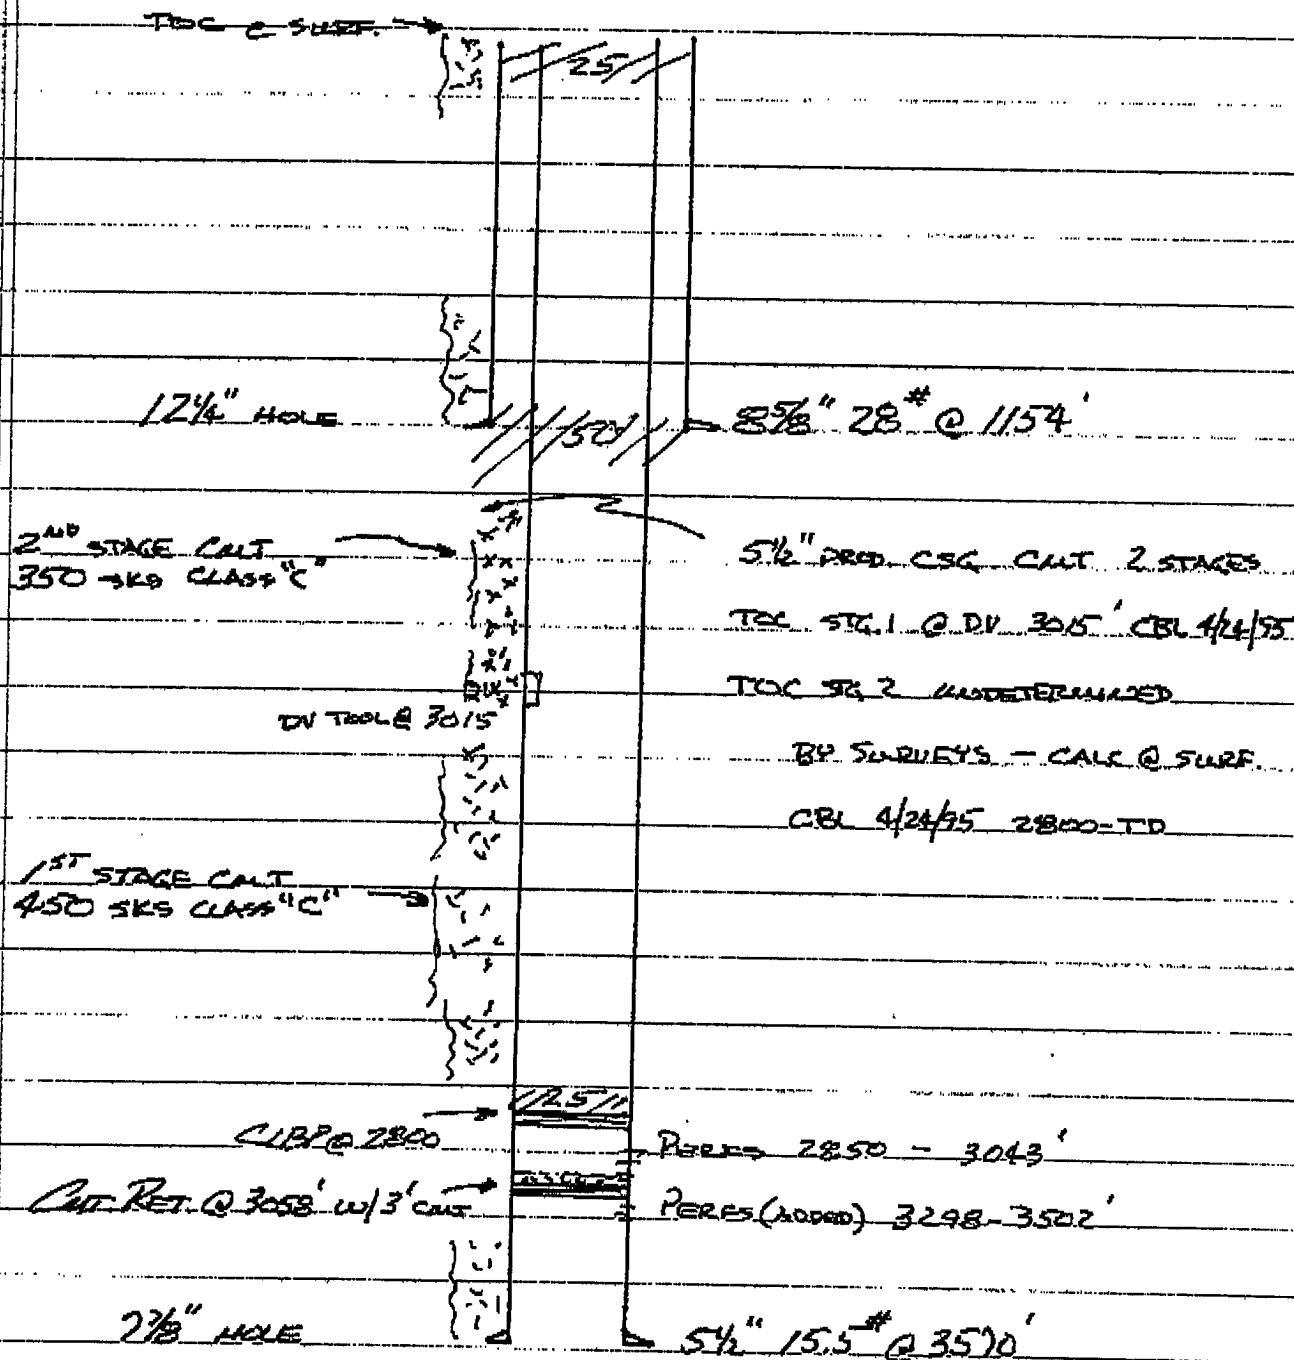 TOC @ SURF.
25
12 1/4" HOLE
50'
8 5/8" 28# @ 1154'
2ND STAGE CMT
350 SKS CLASS "C"
5 1/2" PROD. CSG CMT 2 STAGES
TOC STG. 1 @ DV 3015' CBL 4/24/95
TOC STG 2 UNDETERMINED
DV TOOL @ 3015
BY SURVEYS - CALC @ SURF.
CBL 4/24/95 2800-TD
1ST STAGE CMT
450 SKS CLASS "C"
25
CIBP @ 2800
PERFS 2850 - 3043'
CMT RET. @ 3058' W/3' CMT
PERFS (ADDED) 3298-3502'
7 7/8" HOLE
5 1/2" 15.5# @ 3570'